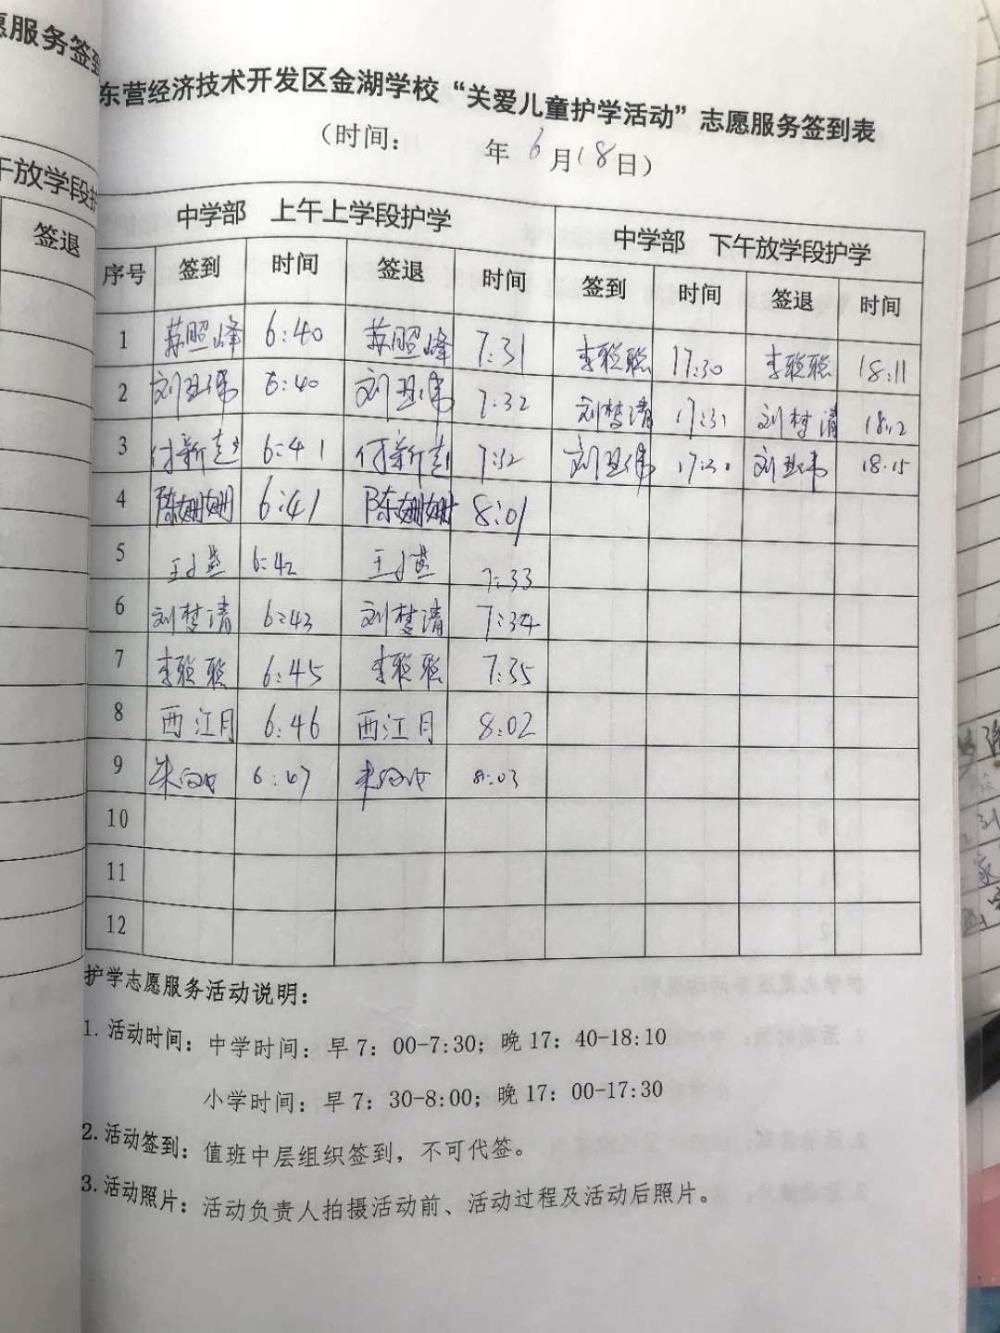 愿服务签到
午放学段护
签退
东营经济技术开发区金湖学校“关爱儿童护学活动”志愿服务签到表
（时间： 年 6月18日）
中学部 上午上学段护学 中学部 下午放学段护学
序号 签到 时间 签退 时间 签到 时间 签退 时间
1 苏照峰 6:40 苏照峰 7:31 李聪聪 17:30 李聪聪 18:11
2 刘卫伟 6:40 刘卫伟 7:32 刘梦清 17:31 刘梦清 18:12
3 付新 6:41 付新 7:32 刘卫伟 17:30 刘卫伟 18:15
4 陈姗姗 6:41 陈姗姗 8:01
5 王小燕 6:42 王小燕 7:33
6 刘梦清 6:43 刘梦清 7:34
7 李聪聪 6:45 李聪聪 7:35
8 西江月 6:46 西江月 8:02
9 朱 6:47 朱 8:03
10
11
12
护学志愿服务活动说明：
1.活动时间：中学时间：早7：00-7:30；晚17：40-18:10
小学时间：早7：30-8:00；晚17：00-17:30
2.活动签到：值班中层组织签到，不可代签。
3.活动照片：活动负责人拍摄活动前、活动过程及活动后照片。